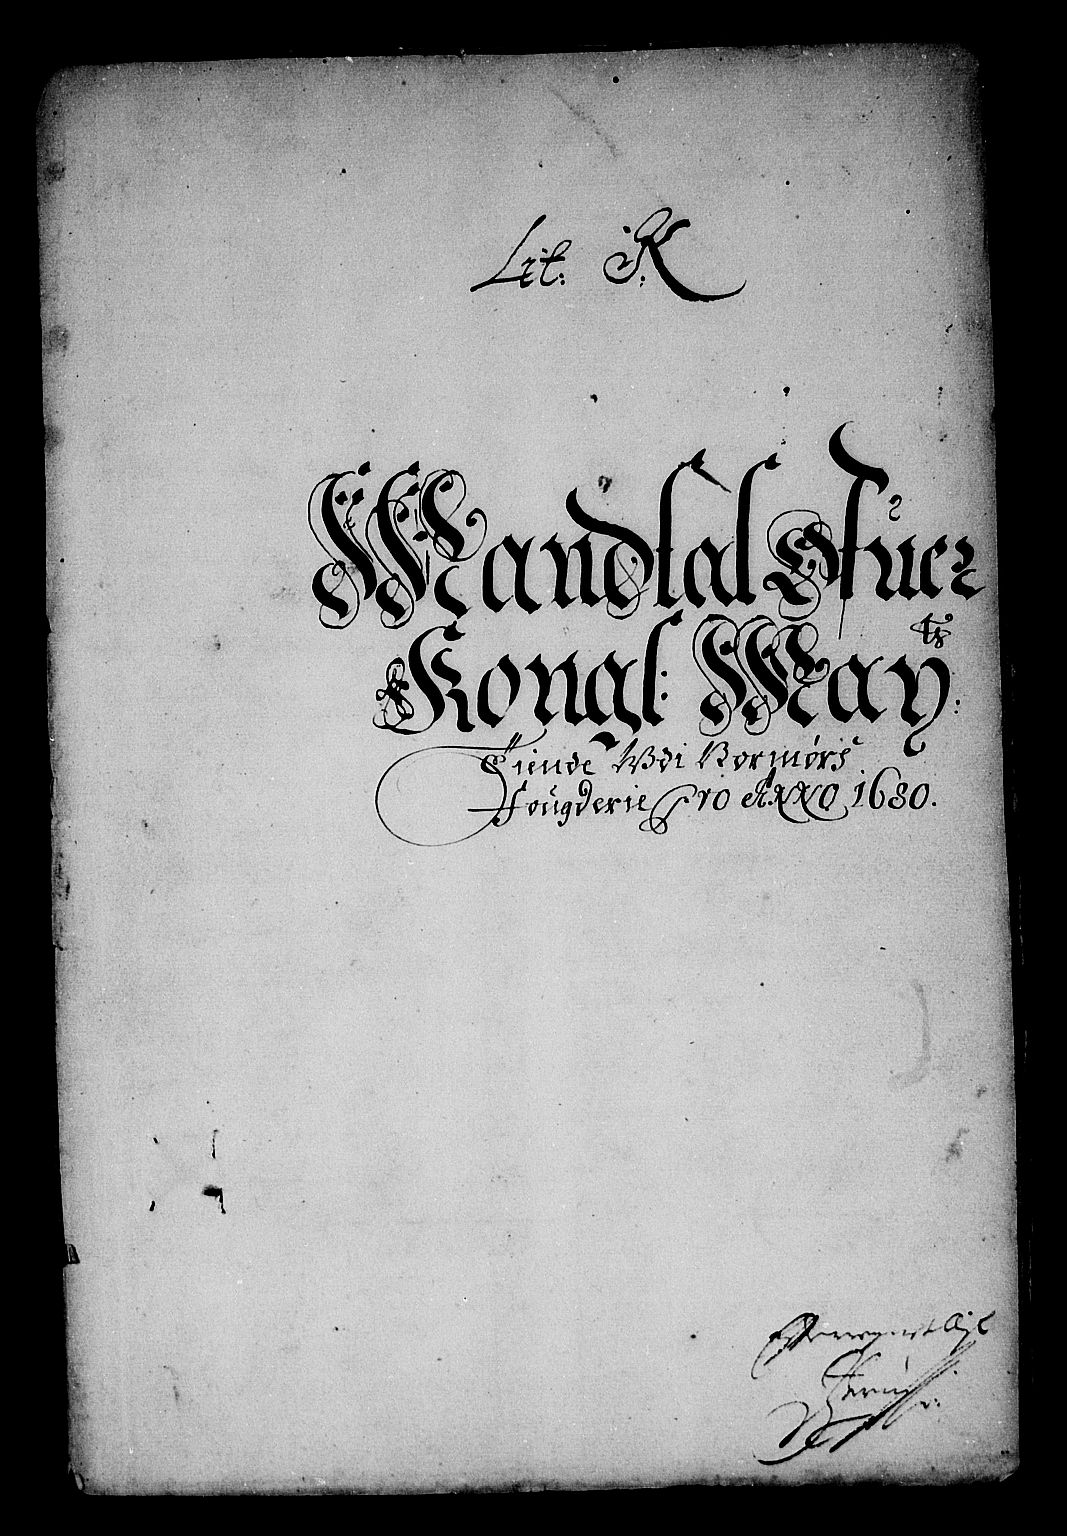 Lit: K:
Mandtal Ofuer
Kongl: May:ts
Tiende Vdi Normørs
Fougderie Pro ANNO 1680.